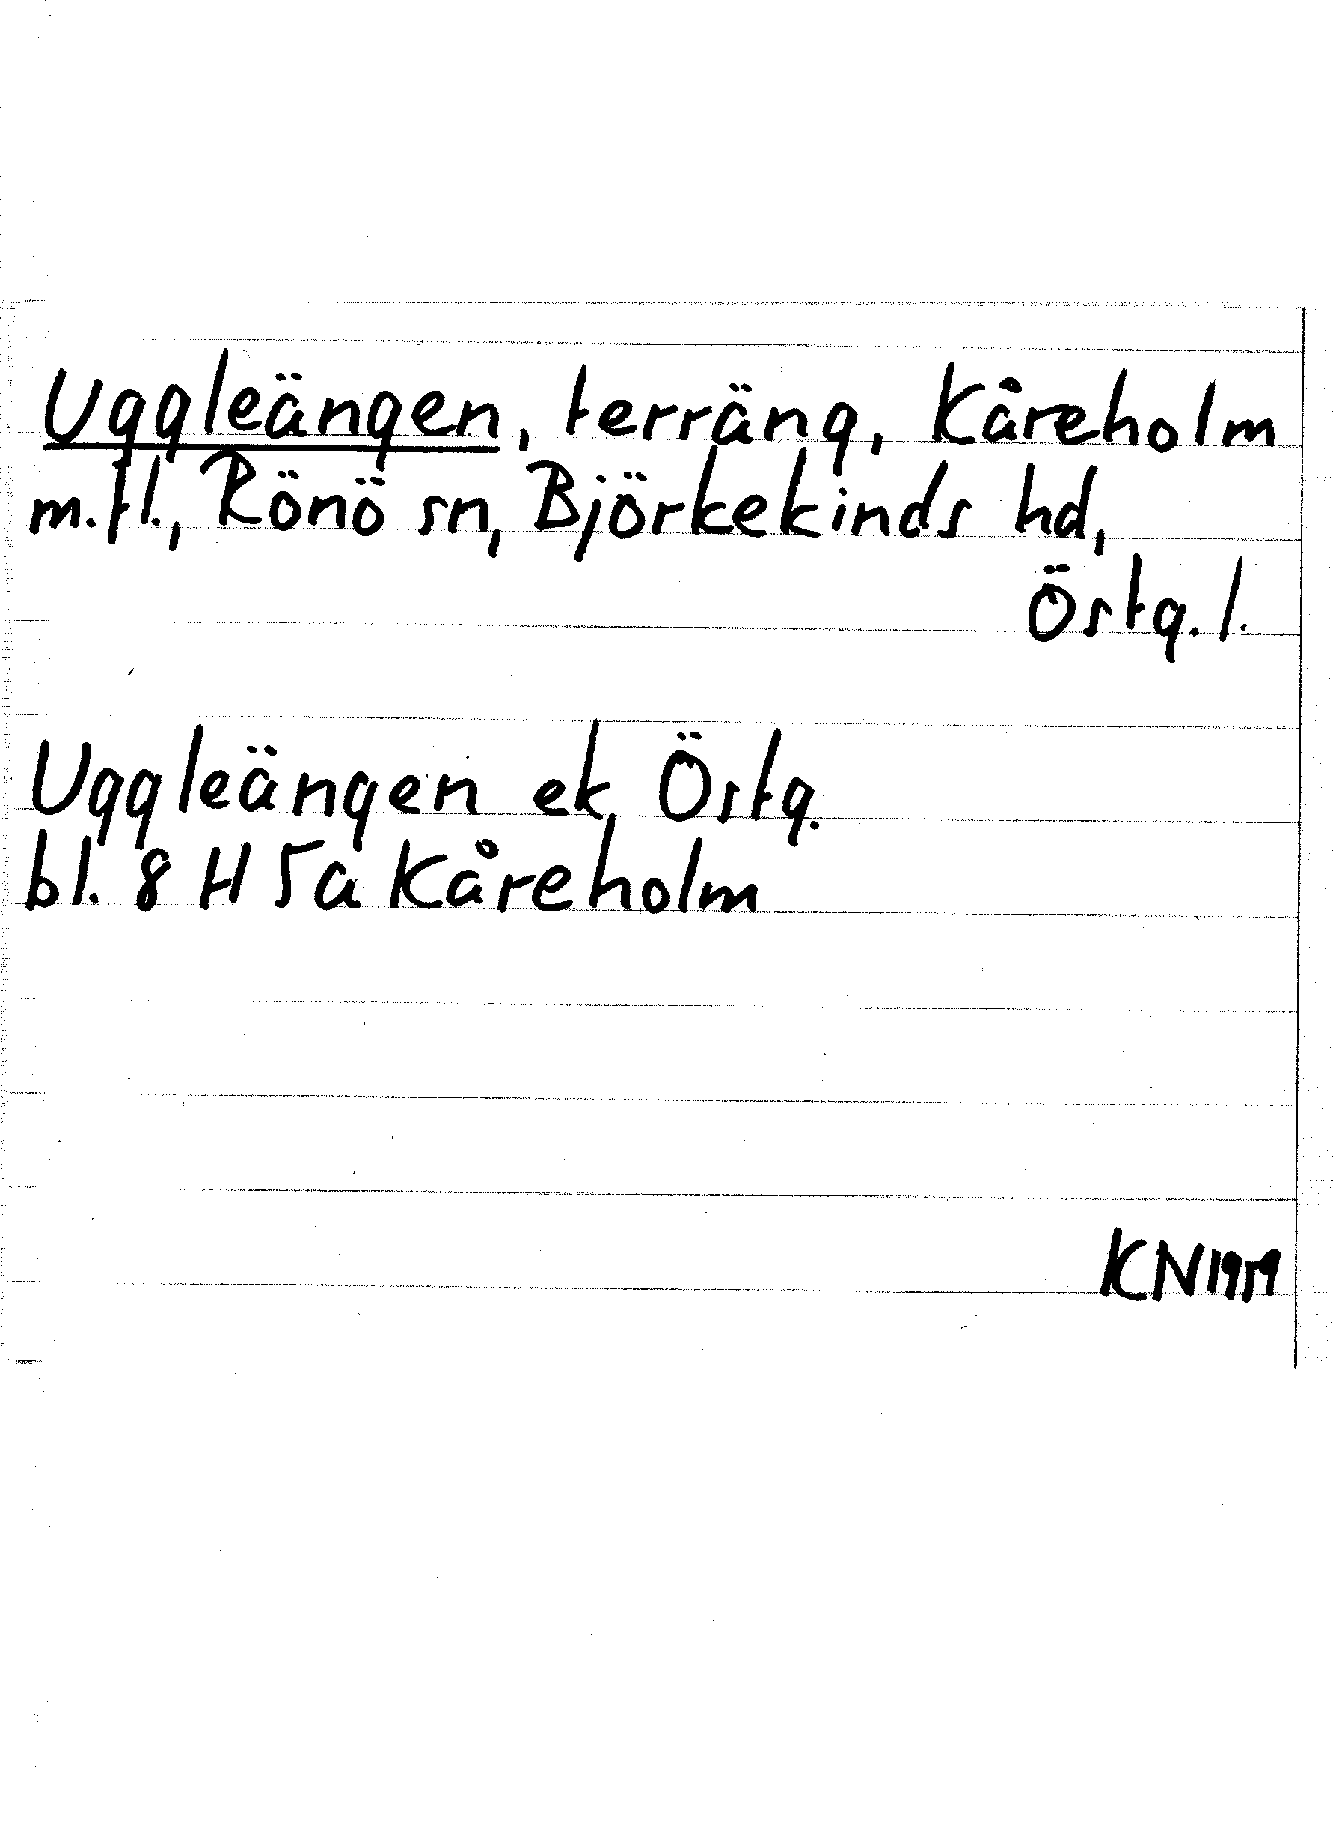 Uggleängen, terräng, Kåreholm
m.fl., Rönö sn, Björkekinds hd,
Östg. l.
Uggleängen ek Östg.
bl. 8 H 5a Kåreholm
KN 1959